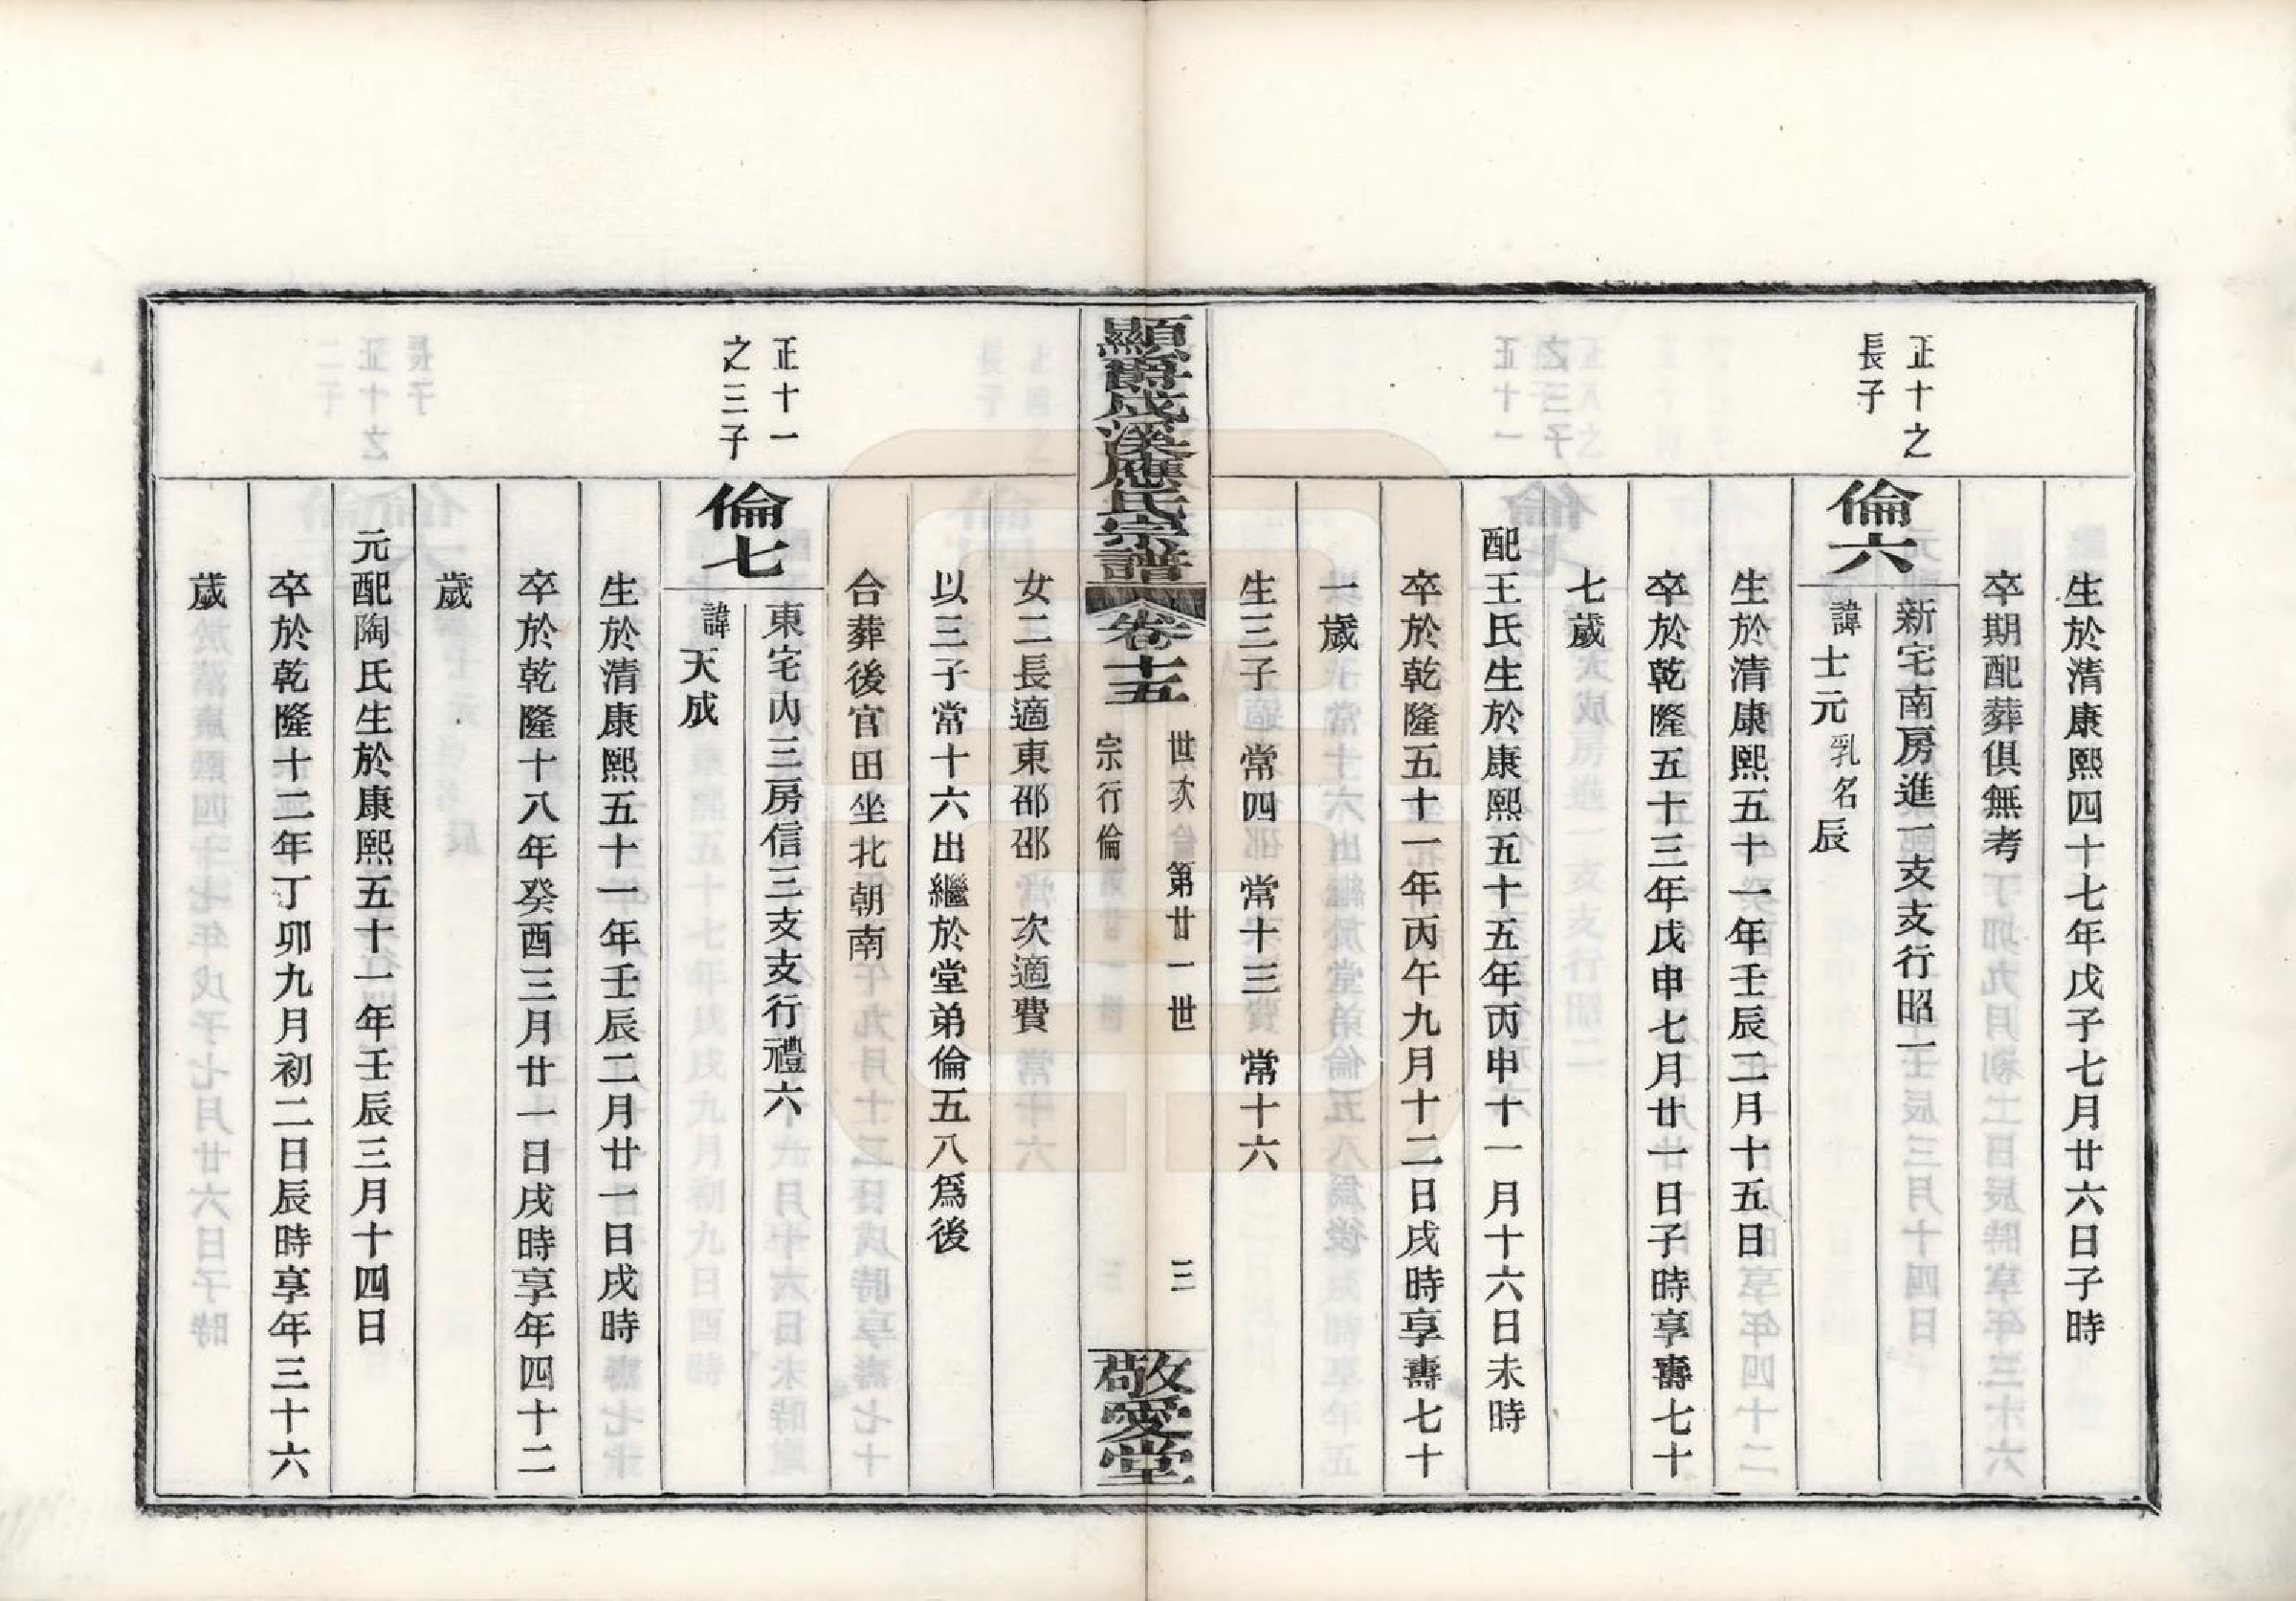 生於清康熙四十七年戊子七月廿六日子時
卒期配葬俱無考
正十之
長子
倫六
新宅南房進一支支行昭一
諱士元乳名辰
生於清康熙五十一年壬辰二月十五日
卒於乾隆五十三年戊申七月廿一日子時享壽七十
七歲
配王氏生於康熙五十五年丙申十一月十六日未時
卒於乾隆五十一年丙午九月十二日戌時享壽七十
一歲
生三子 常四 常十三 常十六
顯爵成溪應氏宗譜 卷十五
世次 第廿一世 三
宗行倫
敬愛堂
女二長適東邵邵 次適費
以三子常十六出繼於堂弟倫五八爲後
合葬後官田坐北朝南
正十一
之三子
倫七
東宅內三房信三支支行禮六
諱天成
生於清康熙五十一年壬辰二月廿一日戌時
卒於乾隆十八年癸酉三月廿一日戌時享年四十二
歲
元配陶氏生於康熙五十一年壬辰三月十四日
卒於乾隆十二年丁卯九月初二日辰時享年三十六
歲